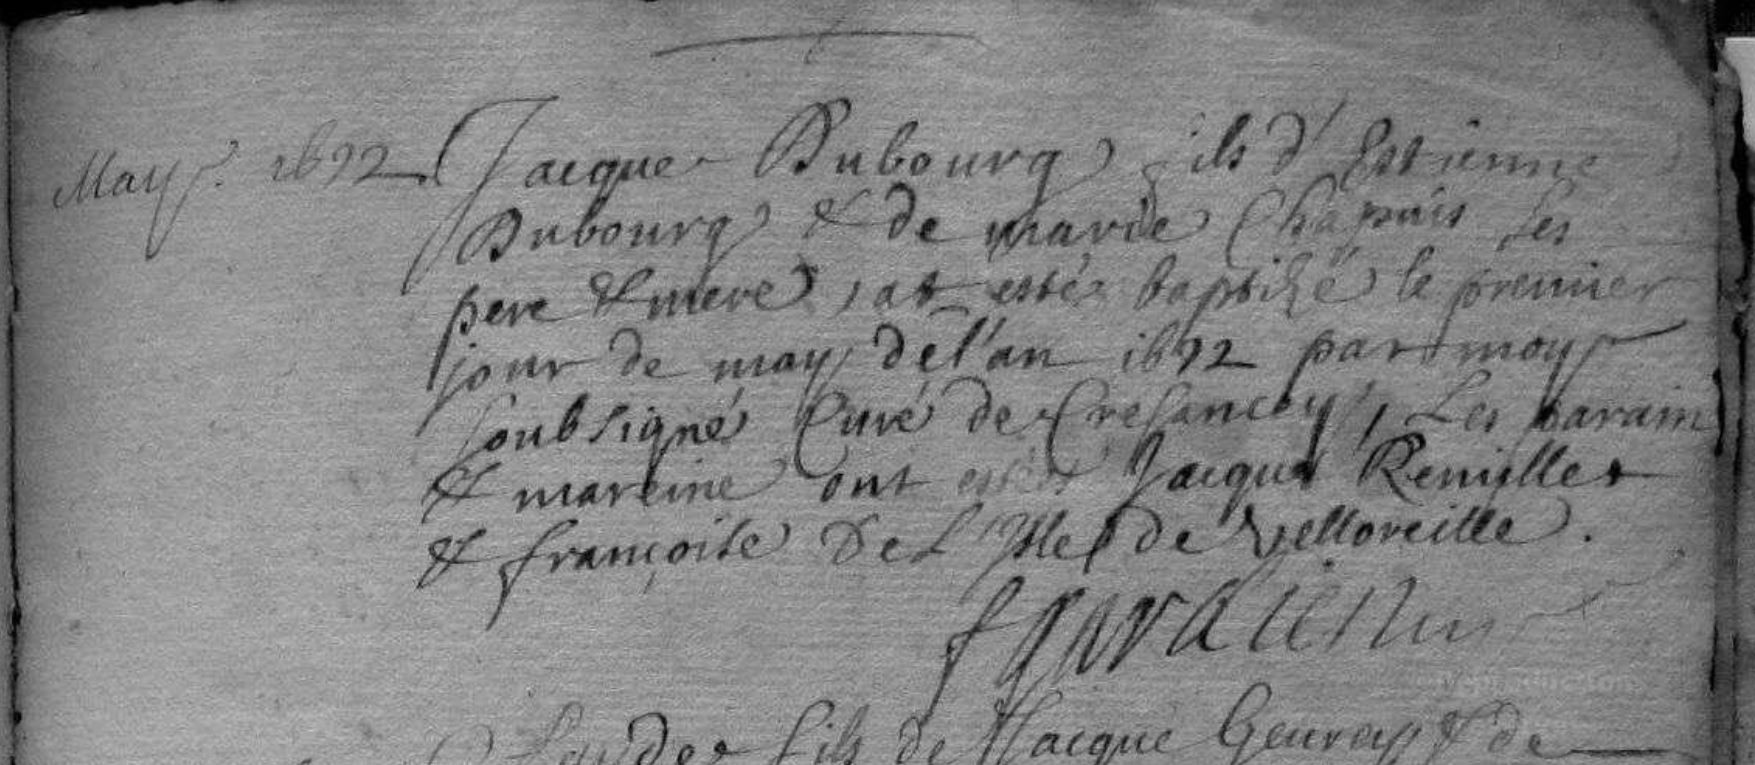 May. 1672. Jacque Dubourg fils d'Estienne
Dubourg & de marie Chapuis ses
pere & mere, at estés baptizé le premier
jour de may de l'an 1672 par moy
soubsigné Curé de Cresancey, Les parain
& mareine ont estés Jacques Remillet
& françoise De L'Isle de Velloreille.
Claude fils de Jacque Gevrey & de